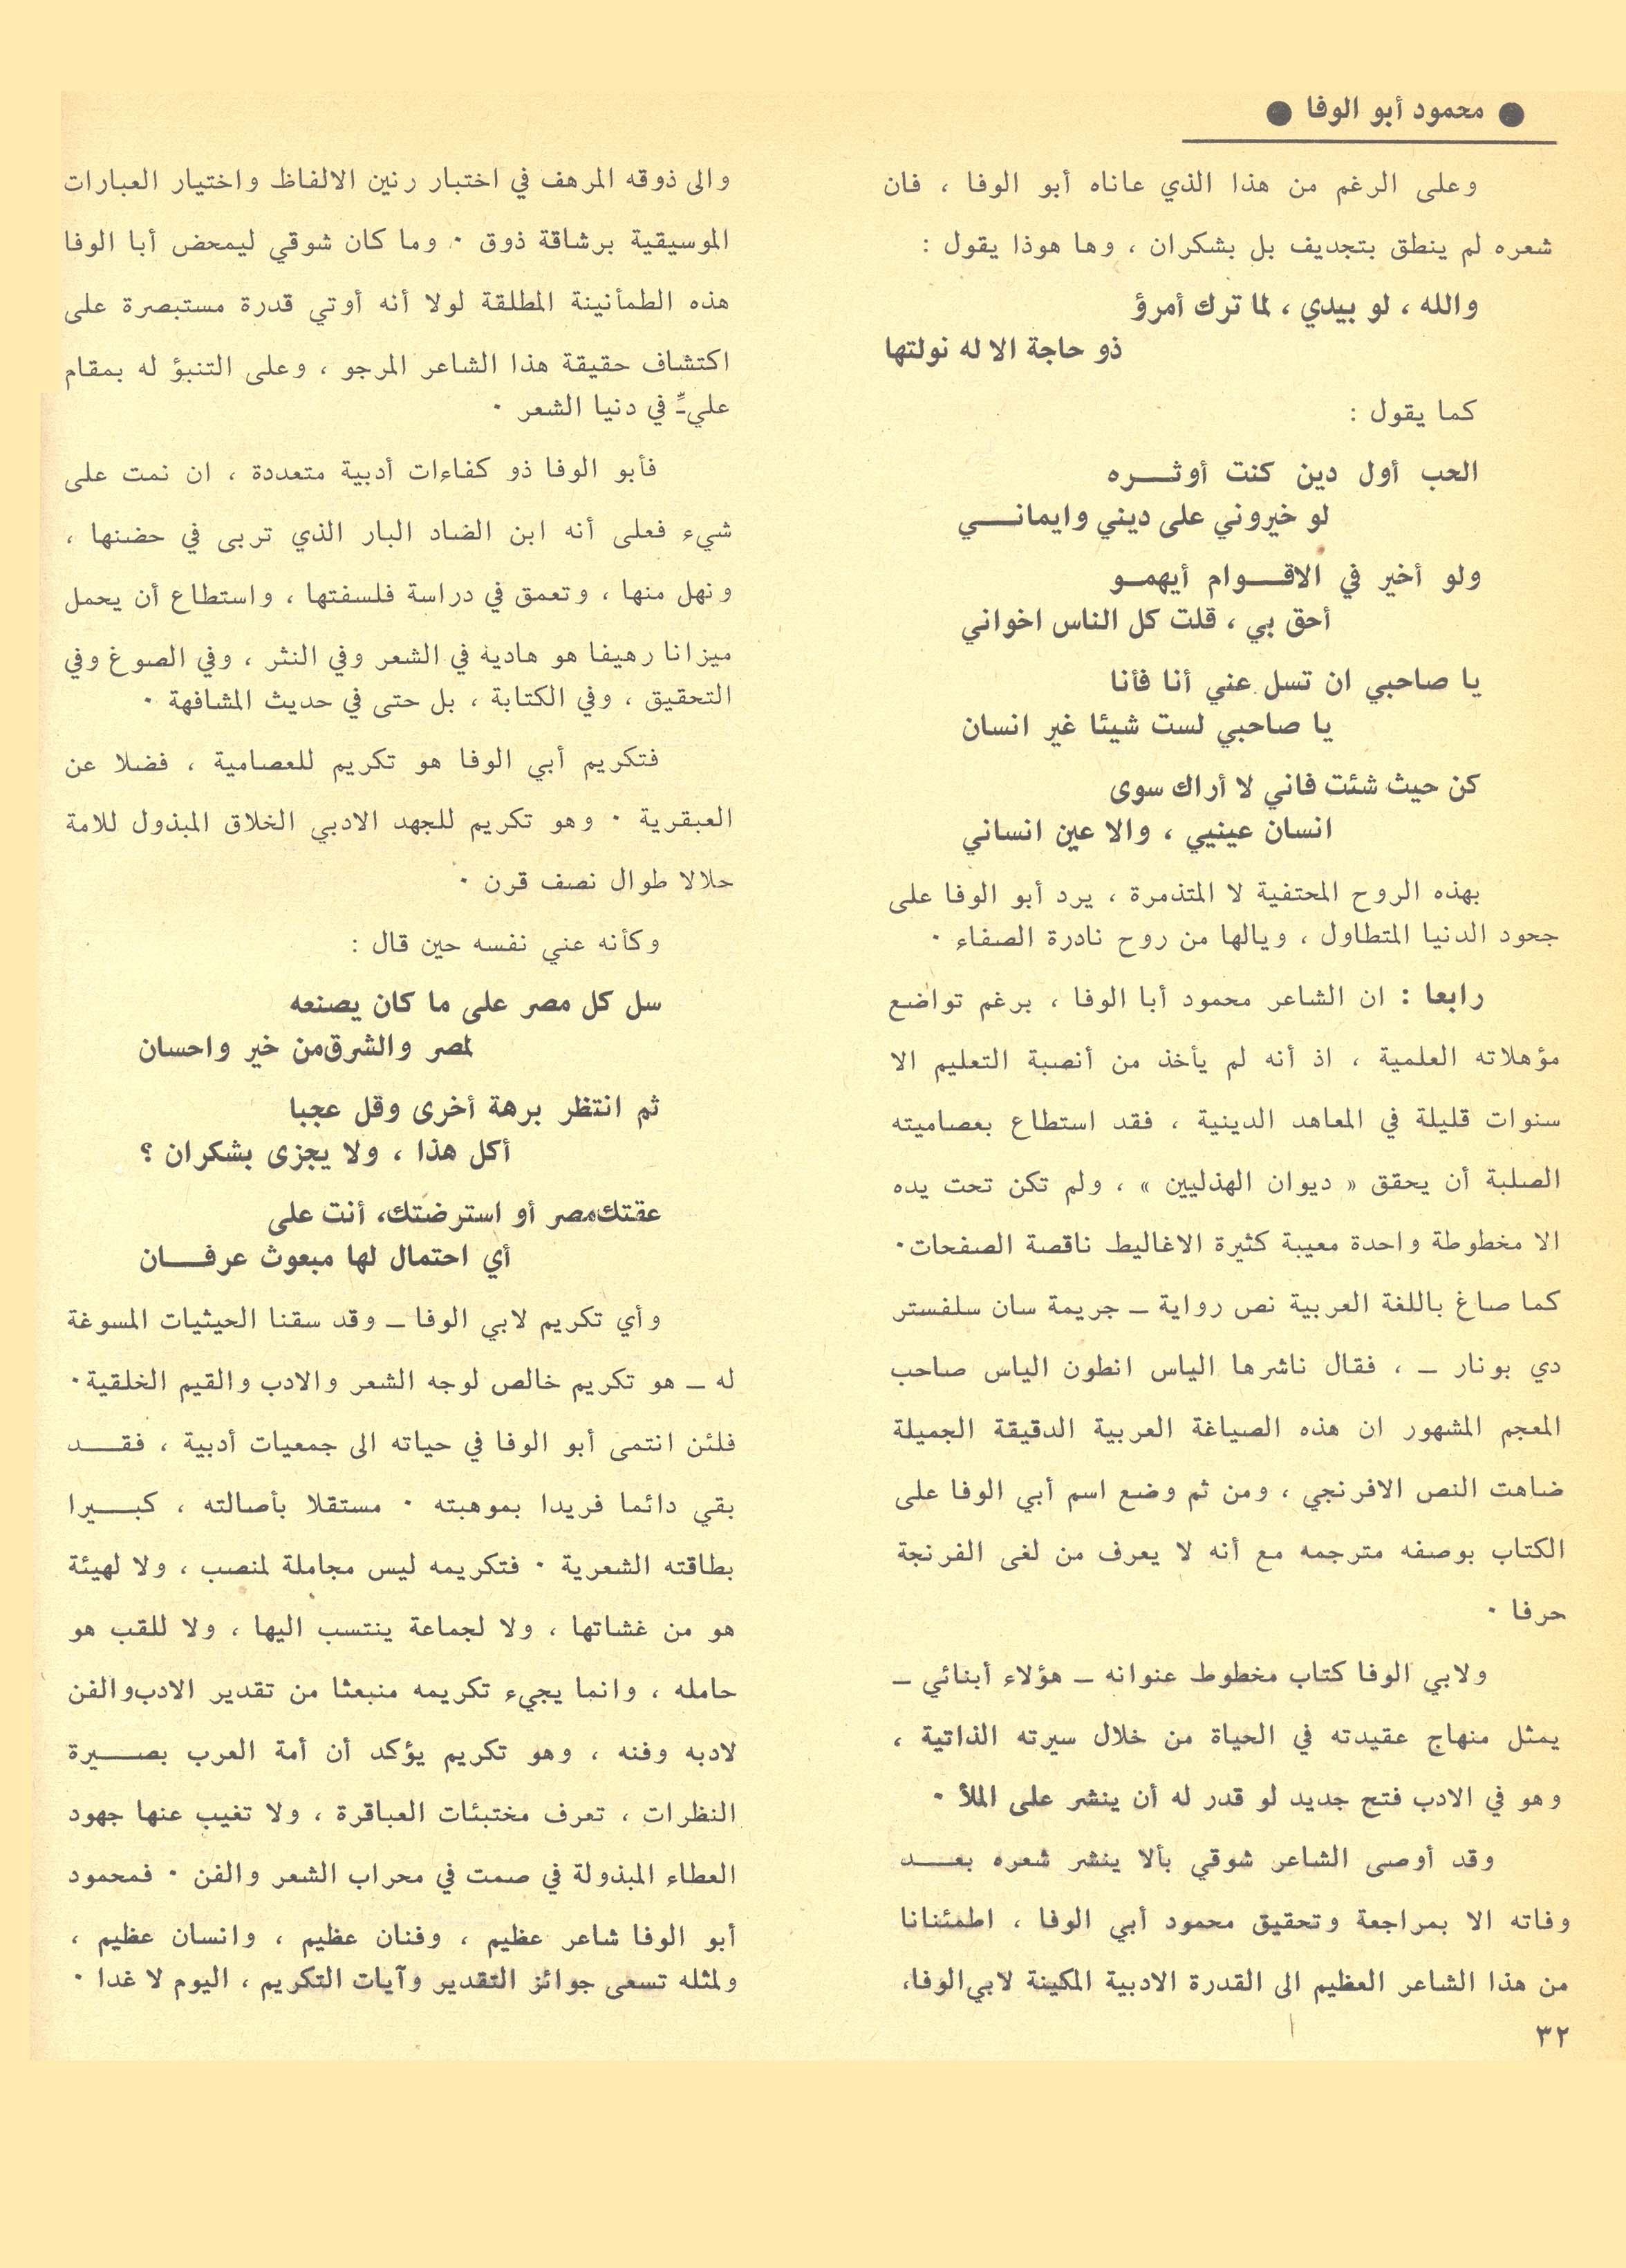 ● محمود أبو الوفا ●
وعلى الرغم من هذا الذي عاناه أبو الوفا ، فان
شعره لم ينطق بتجديف بل بشكران ، وها هوذا يقول :
والله ، لو بيدي ، لما ترك أمرؤ
ذو حاجة الا له نولتها
كما يقول :
الحب أول دين كنت أوثــره
لو خيروني على ديني وايمانــي
ولو أخير في الاقــوام أيهمــو
أحق بي ، قلت كل الناس اخواني
يا صاحبي ان تسل عني أنا فأنا
يا صاحبي لست شيئا غير انسان
كن حيث شئت فاني لا أراك سوى
انسان عينيي ، والا عين انساني
بهذه الروح المحتفية لا المتذمرة ، يرد أبو الوفا على
جحود الدنيا المتطاول ، ويالها من روح نادرة الصفاء .
رابعا : ان الشاعر محمود أبا الوفا ، برغم تواضع
مؤهلاته العلمية ، اذ أنه لم يأخذ من أنصبة التعليم الا
سنوات قليلة في المعاهد الدينية ، فقد استطاع بعصاميته
الصلبة أن يحقق « ديوان الهذليين » ، ولم تكن تحت يده
الا مخطوطة واحدة معيبة كثيرة الاغاليط ناقصة الصفحات .
كما صاغ باللغة العربية نص رواية ــ جريمة سان سلفستر
دي بونار ــ ، فقال ناشرها الياس انطون الياس صاحب
المعجم المشهور ان هذه الصياغة العربية الدقيقة الجميلة
ضاهت النص الافرنجي ، ومن ثم وضع اسم أبي الوفا على
الكتاب بوصفه مترجمه مع أنه لا يعرف من لغى الفرنجة
حرفا .
ولابي الوفا كتاب مخطوط عنوانه ــ هؤلاء أبنائي ــ
يمثل منهاج عقيدته في الحياة من خلال سيرته الذاتية ،
وهو في الادب فتح جديد لو قدر له أن ينشر على الملأ .
وقد أوصى الشاعر شوقي بألا ينشر شعره بعــد
وفاته الا بمراجعة وتحقيق محمود أبي الوفا ، اطمئنانا
من هذا الشاعر العظيم الى القدرة الادبية المكينة لابي الوفا،
والى ذوقه المرهف في اختبار رنين الالفاظ واختيار العبارات
الموسيقية برشاقة ذوق . وما كان شوقي ليمحض أبا الوفا
هذه الطمأنينة المطلقة لولا أنه أوتي قدرة مستبصرة على
اكتشاف حقيقة هذا الشاعر المرجو ، وعلى التنبؤ له بمقام
عليٍّ في دنيا الشعر .
فأبو الوفا ذو كفاءات أدبية متعددة ، ان نمت على
شيء فعلى أنه ابن الضاد البار الذي تربى في حضنها ،
ونهل منها ، وتعمق في دراسة فلسفتها ، واستطاع أن يحمل
ميزانا رهيفا هو هاديه في الشعر وفي النثر ، وفي الصوغ وفي
التحقيق ، وفي الكتابة ، بل حتى في حديث المشافهة .
فتكريم أبي الوفا هو تكريم للعصامية ، فضلا عن
العبقرية . وهو تكريم للجهد الادبي الخلاق المبذول للامة
حلالا طوال نصف قرن .
وكأنه عني نفسه حين قال :
سل كل مصر على ما كان يصنعه
لمصر والشرق من خير واحسان
ثم انتظر برهة أخرى وقل عجبا
أكل هذا ، ولا يجزى بشكران ؟
عقتك مصر أو استرضتك، أنت على
أي احتمال لها مبعوث عرفــان
وأي تكريم لابي الوفا ــ وقد سقنا الحيثيات المسوغة
له ــ هو تكريم خالص لوجه الشعر والادب والقيم الخلقية .
فلئن انتمى أبو الوفا في حياته الى جمعيات أدبية ، فقــد
بقي دائما فريدا بموهبته . مستقلا بأصالته ، كبــيرا
بطاقته الشعرية . فتكريمه ليس مجاملة لمنصب ، ولا لهيئة
هو من غشاتها ، ولا لجماعة ينتسب اليها ، ولا للقب هو
حامله ، وانما يجيء تكريمه منبعثا من تقدير الادب والفن
لادبه وفنه ، وهو تكريم يؤكد أن أمة العرب بصــيرة
النظرات ، تعرف مختبئات العباقرة ، ولا تغيب عنها جهود
العطاء المبذولة في صمت في محراب الشعر والفن . فمحمود
أبو الوفا شاعر عظيم ، وفنان عظيم ، وانسان عظيم ،
ولمثله تسعى جوائز التقدير وآيات التكريم ، اليوم لا غدا .
٣٢